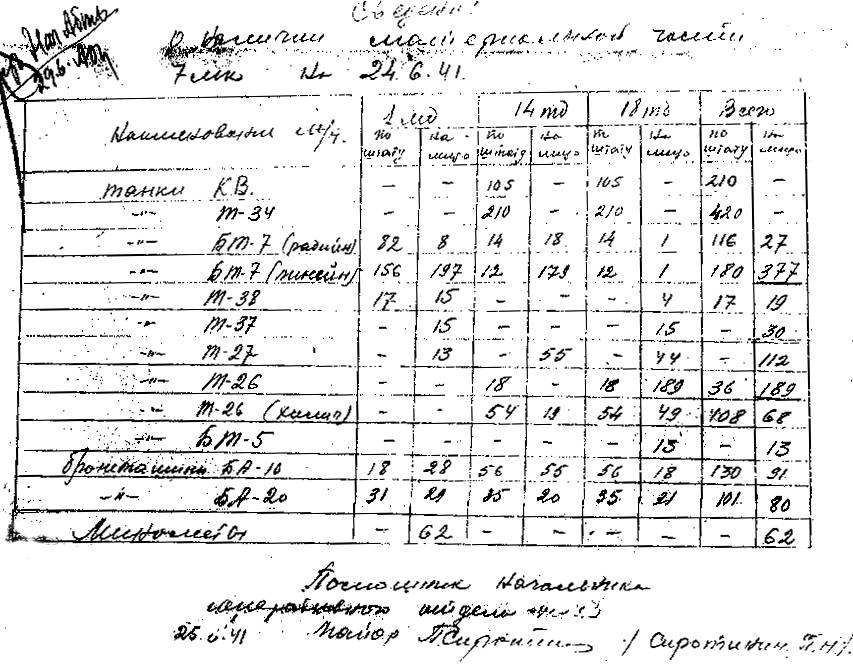 Сведения
о наличии материальной части
7 мк на 24.6.41.
Нач АБТВ
29.6.
1 мд 14 тд 18 тд Всего
Наименование м/ч. по штату на лицо по штату на лицо п штату на лицо по штату на лицо
танки КВ. - - 105 - 105 - 210 -
-"- Т-34 - - 210 - 210 - 420 -
-"- БТ-7 (радийн) 82 8 14 18 14 1 116 27
-"- БТ-7 (линейн) 156 197 12 179 12 1 180 377
-"- Т-38 17 15 - - - 4 17 19
-"- Т-37 - 15 - - - 15 - 30
-"- Т-27 - 13 - 55 - 44 - 112
-"- Т-26 - - 18 - 18 189 36 189
-"- Т-26 (химич) - - 54 19 54 49 108 68
-"- БТ-5 - - - - - 13 - 13
Бронемашины БА-10 18 28 56 55 56 18 130 91
-"- БА-20 31 29 35 20 35 21 101 80
Минометы - 62 - - - - - 62
Помощник начальника
оперативного отдела
25.6.41 Майор / Сиротинин П.Н/.